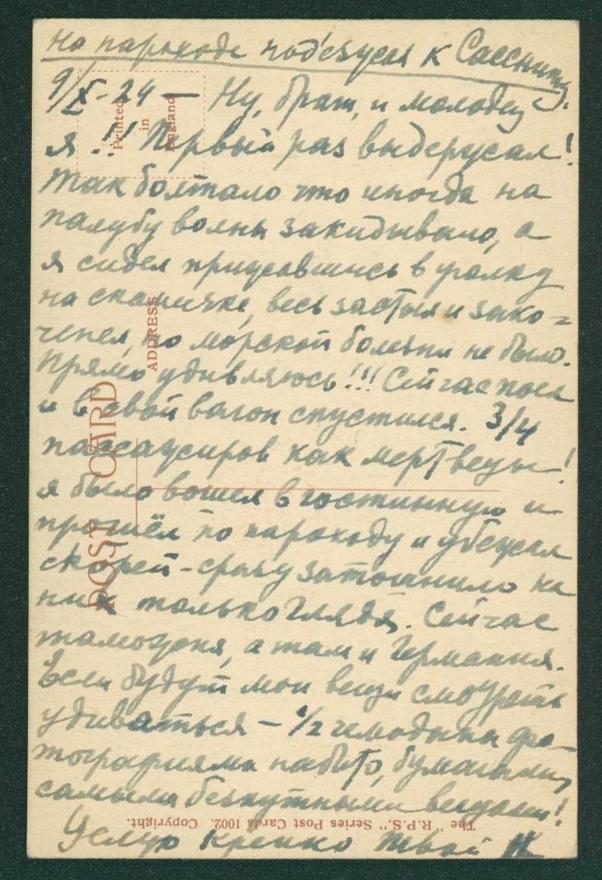 на пароходе подъезжая к Сассницу.
9/X-24 — Ну, брат, и молодец
я!! Первый раз выдержал!
Так болтало что иногда на
палубу волны закидывало, а
я сидел прижавшись в уголку
на скамичке, весь застыл и зако=
ченел, но морской болезни не было.
Прямо удивляюсь!!! Сейчас поел
и в свой вагон спустился. 3/4
пассажиров как мертвецы!
я было вошел в гостинную и
прошёл по пароходу и убежал
скорей - сразу затошнило на
них только глядя. Сейчас
таможня, а там и Германия.
Если будут мои вещи смотреть
удивяться — 1/2 чемодана фо-
тографиями набито, бумагами,
самыми бескутными вещами!
Целую крепко твой Н
Printed
in
England
POST CARD
ADDRESS
The "R.P.S." Series Post Cards 1002. Copyright.